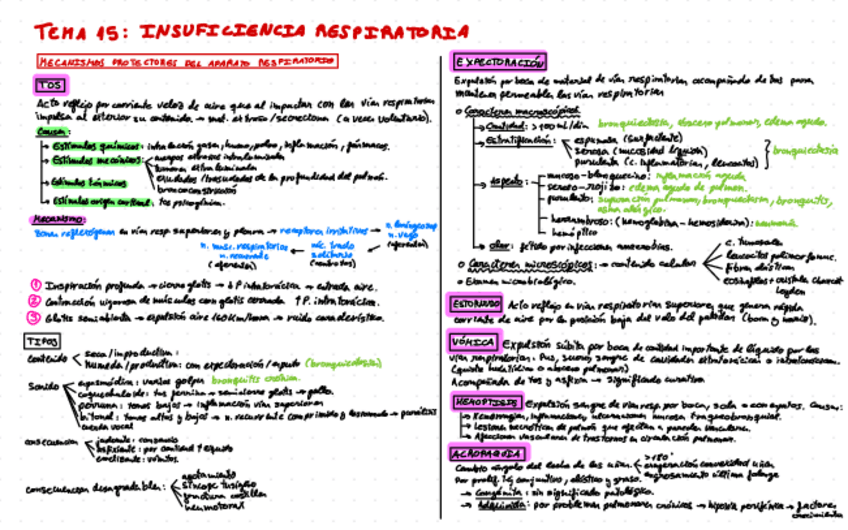 TEMA 15: INSUFICIENCIA RESPIRATORIA
MECANISMOS PROTECTORES DEL APARATO RESPIRATORIO
TOS
Acto reflejo por corriente veloz de aire que al impactar con las vías respiratorias
impulsa al exterior su contenido. → mat. extraño/secreciones (a veces voluntario).
Causas:
→ Estímulos químicos: inhalación gases, humo, polvo, inflamación, fármacos.
→ Estímulos mecánicos: cuerpos extraños intraluminales
tumores extraluminales
exudados/trasudados de la profundidad del pulmón.
→ Estímulos térmicos broncoconstricción
→ Estímulos origen cortical: tos psicógena.
Mecanismo:
Zonas reflexógenas en vías resp. superiores y pleura → receptores irritativos → n. laríngeo sup
n. vago
(aferentes)
n. musc. respiratorios ← núc. tracto
n. recurrente solitario
(eferentes) (centro tos)
① Inspiración profunda → cierre glotis → ↓ P intratorácica → entrada aire.
② Contracción vigorosa de músculos con glotis cerrada ↑ P. intratorácica.
③ Glotis semiabierta → expulsión aire 160 Km/hora → ruido característico.
TIPOS
Contenido seca/improductiva:
húmeda/productiva: con expectoración/esputo (bronquiectasia)
Sonido espasmódica: varios golpes bronquitis crónica.
coqueluchoide: tos ferina → semicierre glotis → gallo.
perruna: tonos bajos → inflamación vías superiores
bitonal: tonos altos y bajos → n. recurrente comprimido y lesionado → parálisis
cuerda vocal
consecuencia
ineficiente: por cantidad esputo
emetizante: vómitos.
consecuencias desagradables: agotamiento
síncope tusígeno
fractura costillas
neumotórax
EXPECTORACIÓN
Expulsión por boca de material de vías respiratorias acompañado de tos para
mantener permeables las vías respiratorias
○ Caracteres macroscópicos:
→ Cantidad: >100 ml/día bronquiectasia, absceso pulmonar, edema agudo.
→ Estratificación: espumosa (surfactante)
serosa (mucosidad líquida)
purulenta (c. inflamatorias, leucocitos) bronquiectasia
→ Aspecto: mucoso-blanquecino: inflamación aguda
seroso-rojizo: edema agudo de pulmón.
purulento: supuración pulmonar, bronquiectasia, bronquitis,
asma alérgico.
herrumbroso: (hemoglobina-hemosiderina): neumonía
hemóptico
→ olor: fétido por infecciones anaerobias.
○ Caracteres microscópicos: → contenido celular c. tumorales
leucocitos polimorfonuc.
fibras elásticas
eosinófilos + cristales charcot
leyden
○ Examen microbiológico.
ESTORNUDO Acto reflejo en vías respiratorias superiores, que genera rápida
corriente de aire por la posición baja del velo del paladar (boca y nariz).
VÓMICA Expulsión súbita por boca de cantidad importante de líquido por las
vías respiratorias: Pus, suero, sangre de cavidades extratorácicas o intratorácicas.
(quiste hidatídico o absceso pulmonar)
Acompañada de tos y asfixia → significado curativo
HEMOPTISIS Expulsión sangre de vías resp. por boca, sola o con esputos. Causas:
→ Hemorragias, inflamaciones, ulceraciones mucosa traqueobronquial.
→ Lesiones necróticas de pulmón que afectan a paredes vasculares.
→ Afecciones vasculares de trastornos en circulación pulmonar.
ACROPAQUIA >180°
Cambio ángulo del lecho de las uñas. exageración convexidad uñas
Por prolif. tej. conjuntivo, elástico y graso. engrosamiento última falange
→ Congénita: sin significado patológico.
→ Adquirida: por problemas pulmonares crónicos → hipoxia periférica → factores
crecimiento